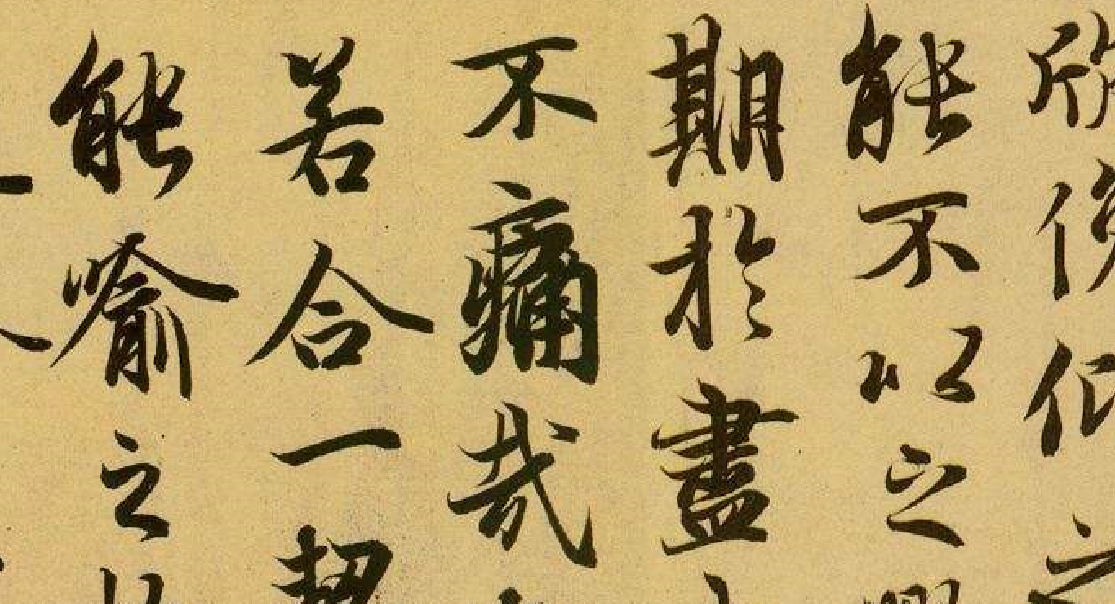 欣俛仰之
能不以之興
期於盡
不痛哉
若合一契
能喻之於